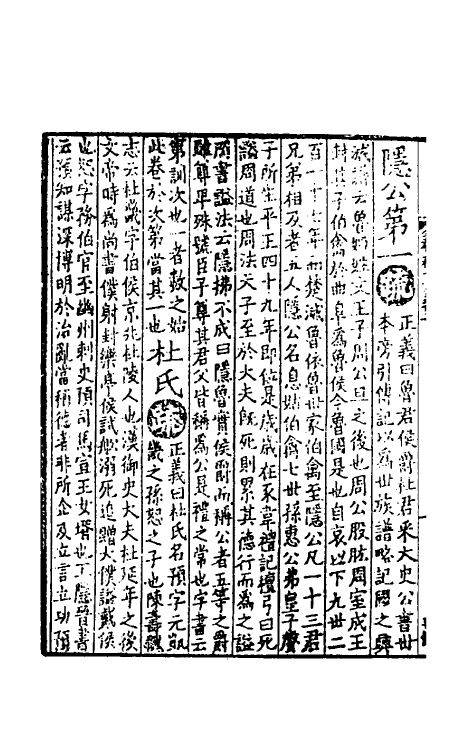 隱公第一疏正義曰魯君侯爵杜君采大史公書世
本旁引傳記以爲世族譜略記國之興
族譜云魯姬姓文王子周公旦之後也周公股肱周室成王
封其子伯禽於曲阜爲魯侯今魯國是也自哀以下九世二
百一十七年而楚滅魯依魯世家伯禽至隱公凡一十三君
兄弟相及者五人隱公名息姑伯禽七世孫惠公弗皇子聲
子所生平王四十九年即位是歲歲在豕韋禮記檀弓曰死
謚周道也周法天子至於大夫既死則累其德行而爲之謚
周書謚法云隱拂不成曰隱魯實侯爵而稱公者五等之爵
雖尊卑殊號臣子尊其君父皆稱爲公是禮之常也字書云
第訓次也一者數之始
此卷於次第當其一也杜氏疏正義曰杜氏名預字元凱
畿之孫恕之子也陳壽魏
志云杜畿字伯侯京兆杜陵人也漢御史大夫杜延年之後
文帝時爲尚書僕射封樂亭侯試船溺死追贈大僕謚戴侯
也恕字務伯官至幽州刺史預司馬宣王女壻也王隱晉書
云預知謀深博明於治亂當稱德者非所企及立言立功預